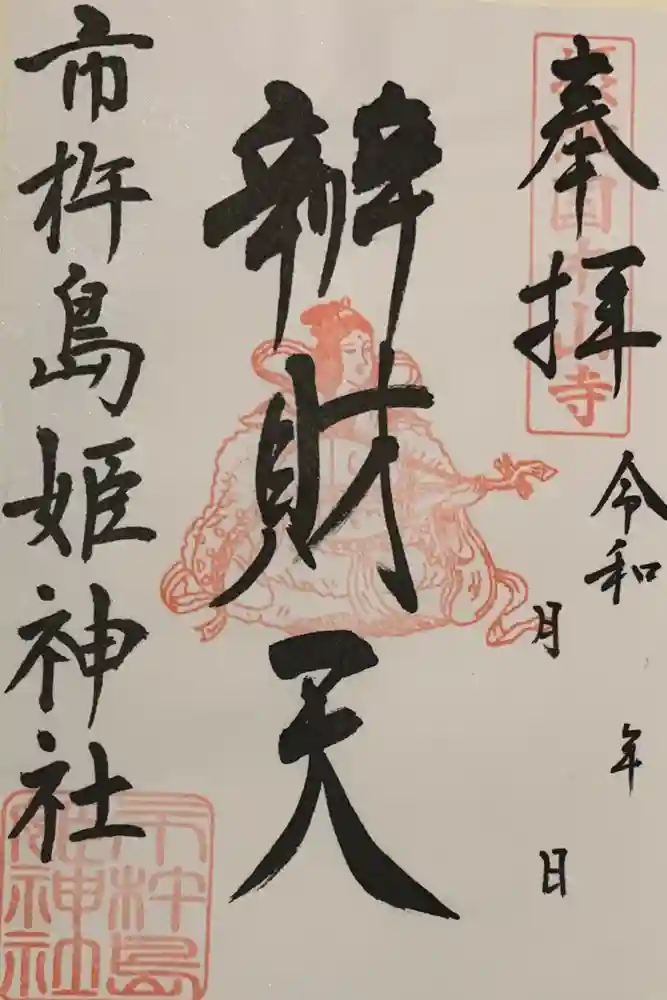 奉拝
令和 年
月 日
辨財天
市杵島姫神社
国中山寺
市杵島
姫神社